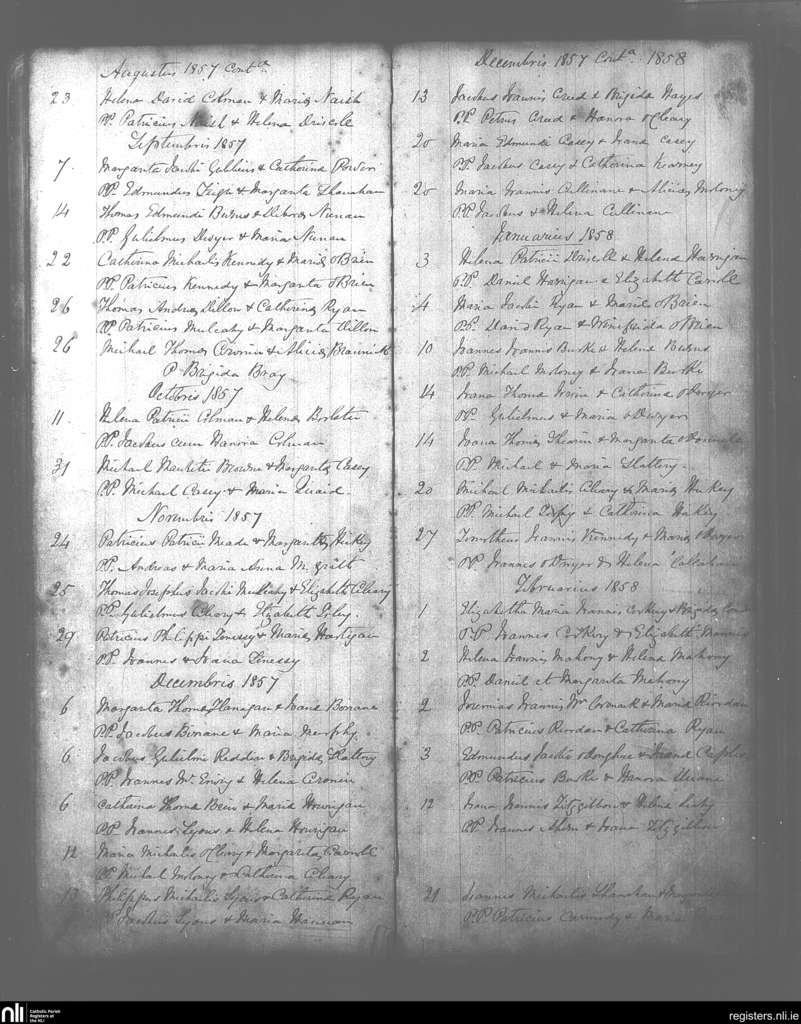 Augustus 1857 Contd
23 Helena David Colman & Maria Naish
PP. Patricius Naish & Helena Driscoll
Septembris 1857
7. Margarita Jacobi Gubbins & Catherina Power
PP. Edmundus & Margarita Shanahan
14 Thomas Edmundi Burns & Debora Nunan
P.P. Gulielmus Dwyer & Maria Nunan
22 Catherina Michaelis Kennedy & Maria O'Brien
PP. Patricius Kennedy & Margarita O'Brien
26 Thomas Andrea Dillon & Catherina Ryan
PP. Patricius Mulcahy & Margarita Dillon
26 Michael Thoma Cronin & Alicia
P Brigida Bray
Octobris 1857
11. Helena Patricii Colman & Helena
PP. Jacobus cum Hanora Colman
31 Michael Browne & Margarita Casey
P.P. Michael Casey & Maria Quaid.
Novembris 1857
24 Patricius Patricii Meade & Margarita Hickey
P.P. Andreas & Maria Anna
25 Thomas Josephus Jacobi Mulcahy & Elizabeth Cleary
P.P. Gulielmus Cleary & Elizabeth
29 Patricius Philippi & Maria Hartigan
P.P. Joannes & Joana
Decembris 1857
6 Margarita Thoma Flanagan & Joana
P.P. Jacobus & Maria Murphy.
6 Jacobus Gulielmi Reddan & Brigida Slattery
PP. Joannes & Helena Cronin
6 Catherina Thoma & Maria Hourigan
P.P. Joannes Lyons & Helena Hourigan
12 Maria Michaelis Cleary & Margarita Carroll
PP Michael Moloney & Catherina Cleary
13 Philippus Michaelis Lyons & Catherina Ryan
PP Jacobus Lyons & Maria
Decembris 1857 Contd. 1858
13 Jacobus Joannis Creed & Brigida Hayes
P.P. Petrus Creed & Hanora O'Cleary
20 Maria Edmundi Casey & Joana Casey
PP. Jacobus Casey & Catherina Kearney
20 Maria Joannis Cullinane & Alicia Moloney
P.P. Jacobus & Helena Cullinane
Januarius 1858
3 Helena Patricii Driscoll & Helena Hourigan
P.P. Daniel Hourigan & Elizabeth Carroll
4 Maria Jacobi Ryan & Maria O'Brien
P.P. David Ryan & Winifrida O'Brien
10 Joannes Joannis Burke & Helena Burns
P.P. Michael Moloney & Joana Burke
14 Joana Thoma & Catherina O'Dwyer
PP. Gulielmus & Maria O'Dwyer
14 Joana Thoma & Margarita
P.P. Michael & Maria Slattery.
20 Michael Michaelis Cleary & Maria Hickey
P.P. Michael & Catherina Hickey
27 Timotheus Joannis Kennedy & Maria O'Dwyer
PP Joannes O'Dwyer & Helena Callaghan
Februarius 1858
1 Elizabetha Maria Joannis Corkery & Brigida
P.P Joannes Corkery & Elizabeth
2 Helena Joannis Mahony & Helena Mahony
PP. Daniel et Margarita Mahony
2 Joannis McCormack & Maria Riordan
PP. Patricius Riordan & Catherina Ryan
3 Edmundus Jacobi O'Donoghue & Joana
PP. Patricius Burke & Hanora
12 Joana Joannis Fitzgibbon & Helena
PP. Joannes & Joana Fitzgibbon
21 Joannes Michaelis Shanahan &
P.P. Patricius & Maria
nli
Catholic Parish
Registers at
the NLI
registers.nli.ie